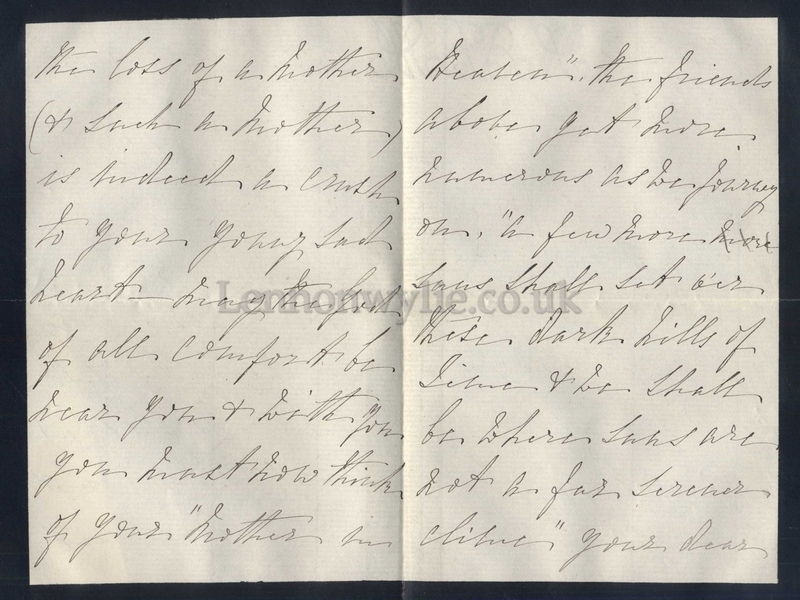 the loss of a Mother
(& such a Mother)
is indeed a crush
to your young sad
heart — may the God
of all comfort be
near you & with you
you must now think
of your "Mother in
Heaven". The friends
above get more
numerous as we journey
on, "a few more more
suns shall set o'er
these dark hills of
Time & we shall
be where suns are
not a far serener
clime" your dear
Lennonwylie.co.uk